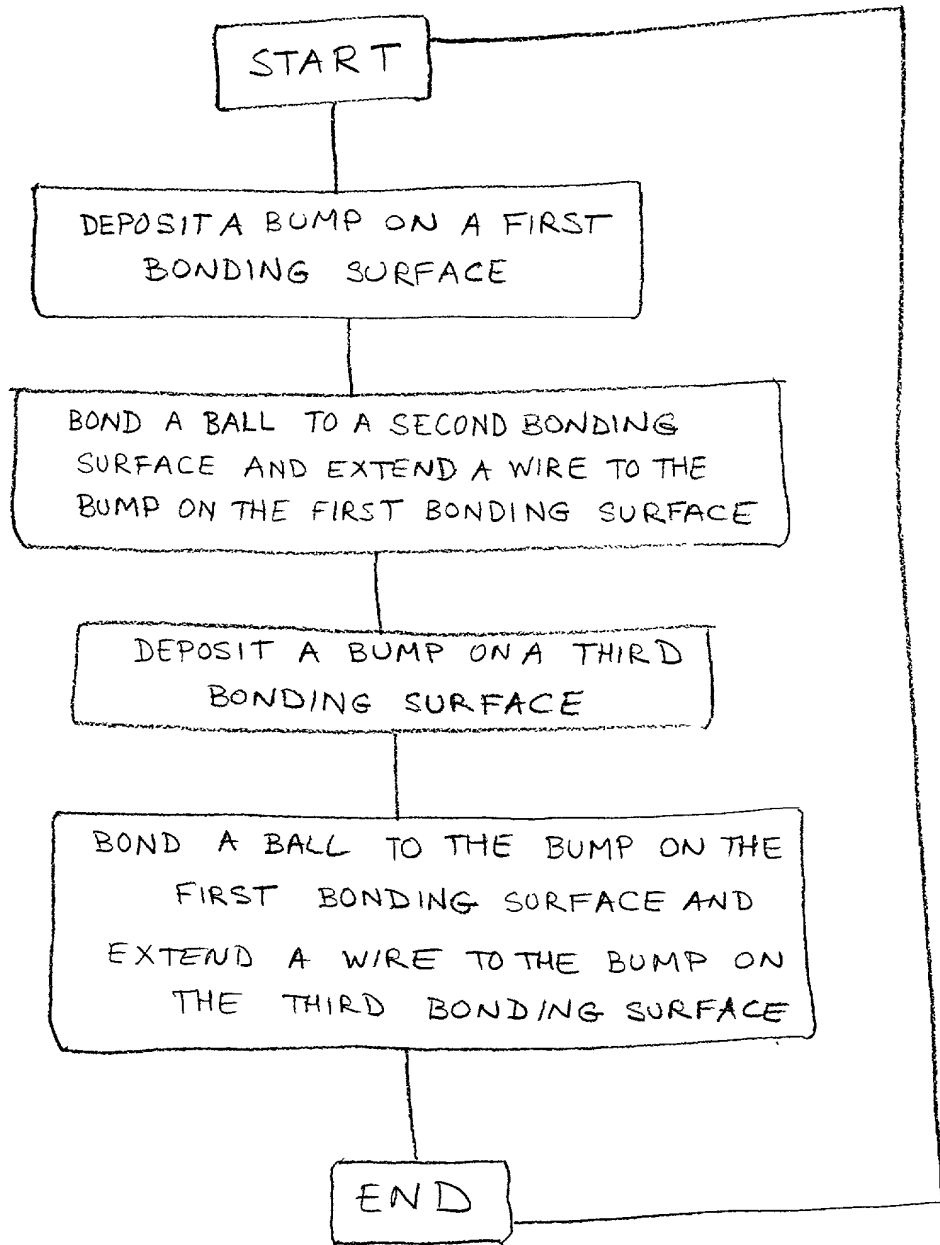 START
DEPOSIT A BUMP ON A FIRST
BONDING SURFACE
BOND A BALL TO A SECOND BONDING
SURFACE AND EXTEND A WIRE TO THE
BUMP ON THE FIRST BONDING SURFACE
DEPOSIT A BUMP ON A THIRD
BONDING SURFACE
BOND A BALL TO THE BUMP ON THE
FIRST BONDING SURFACE AND
EXTEND A WIRE TO THE BUMP ON
THE THIRD BONDING SURFACE
END